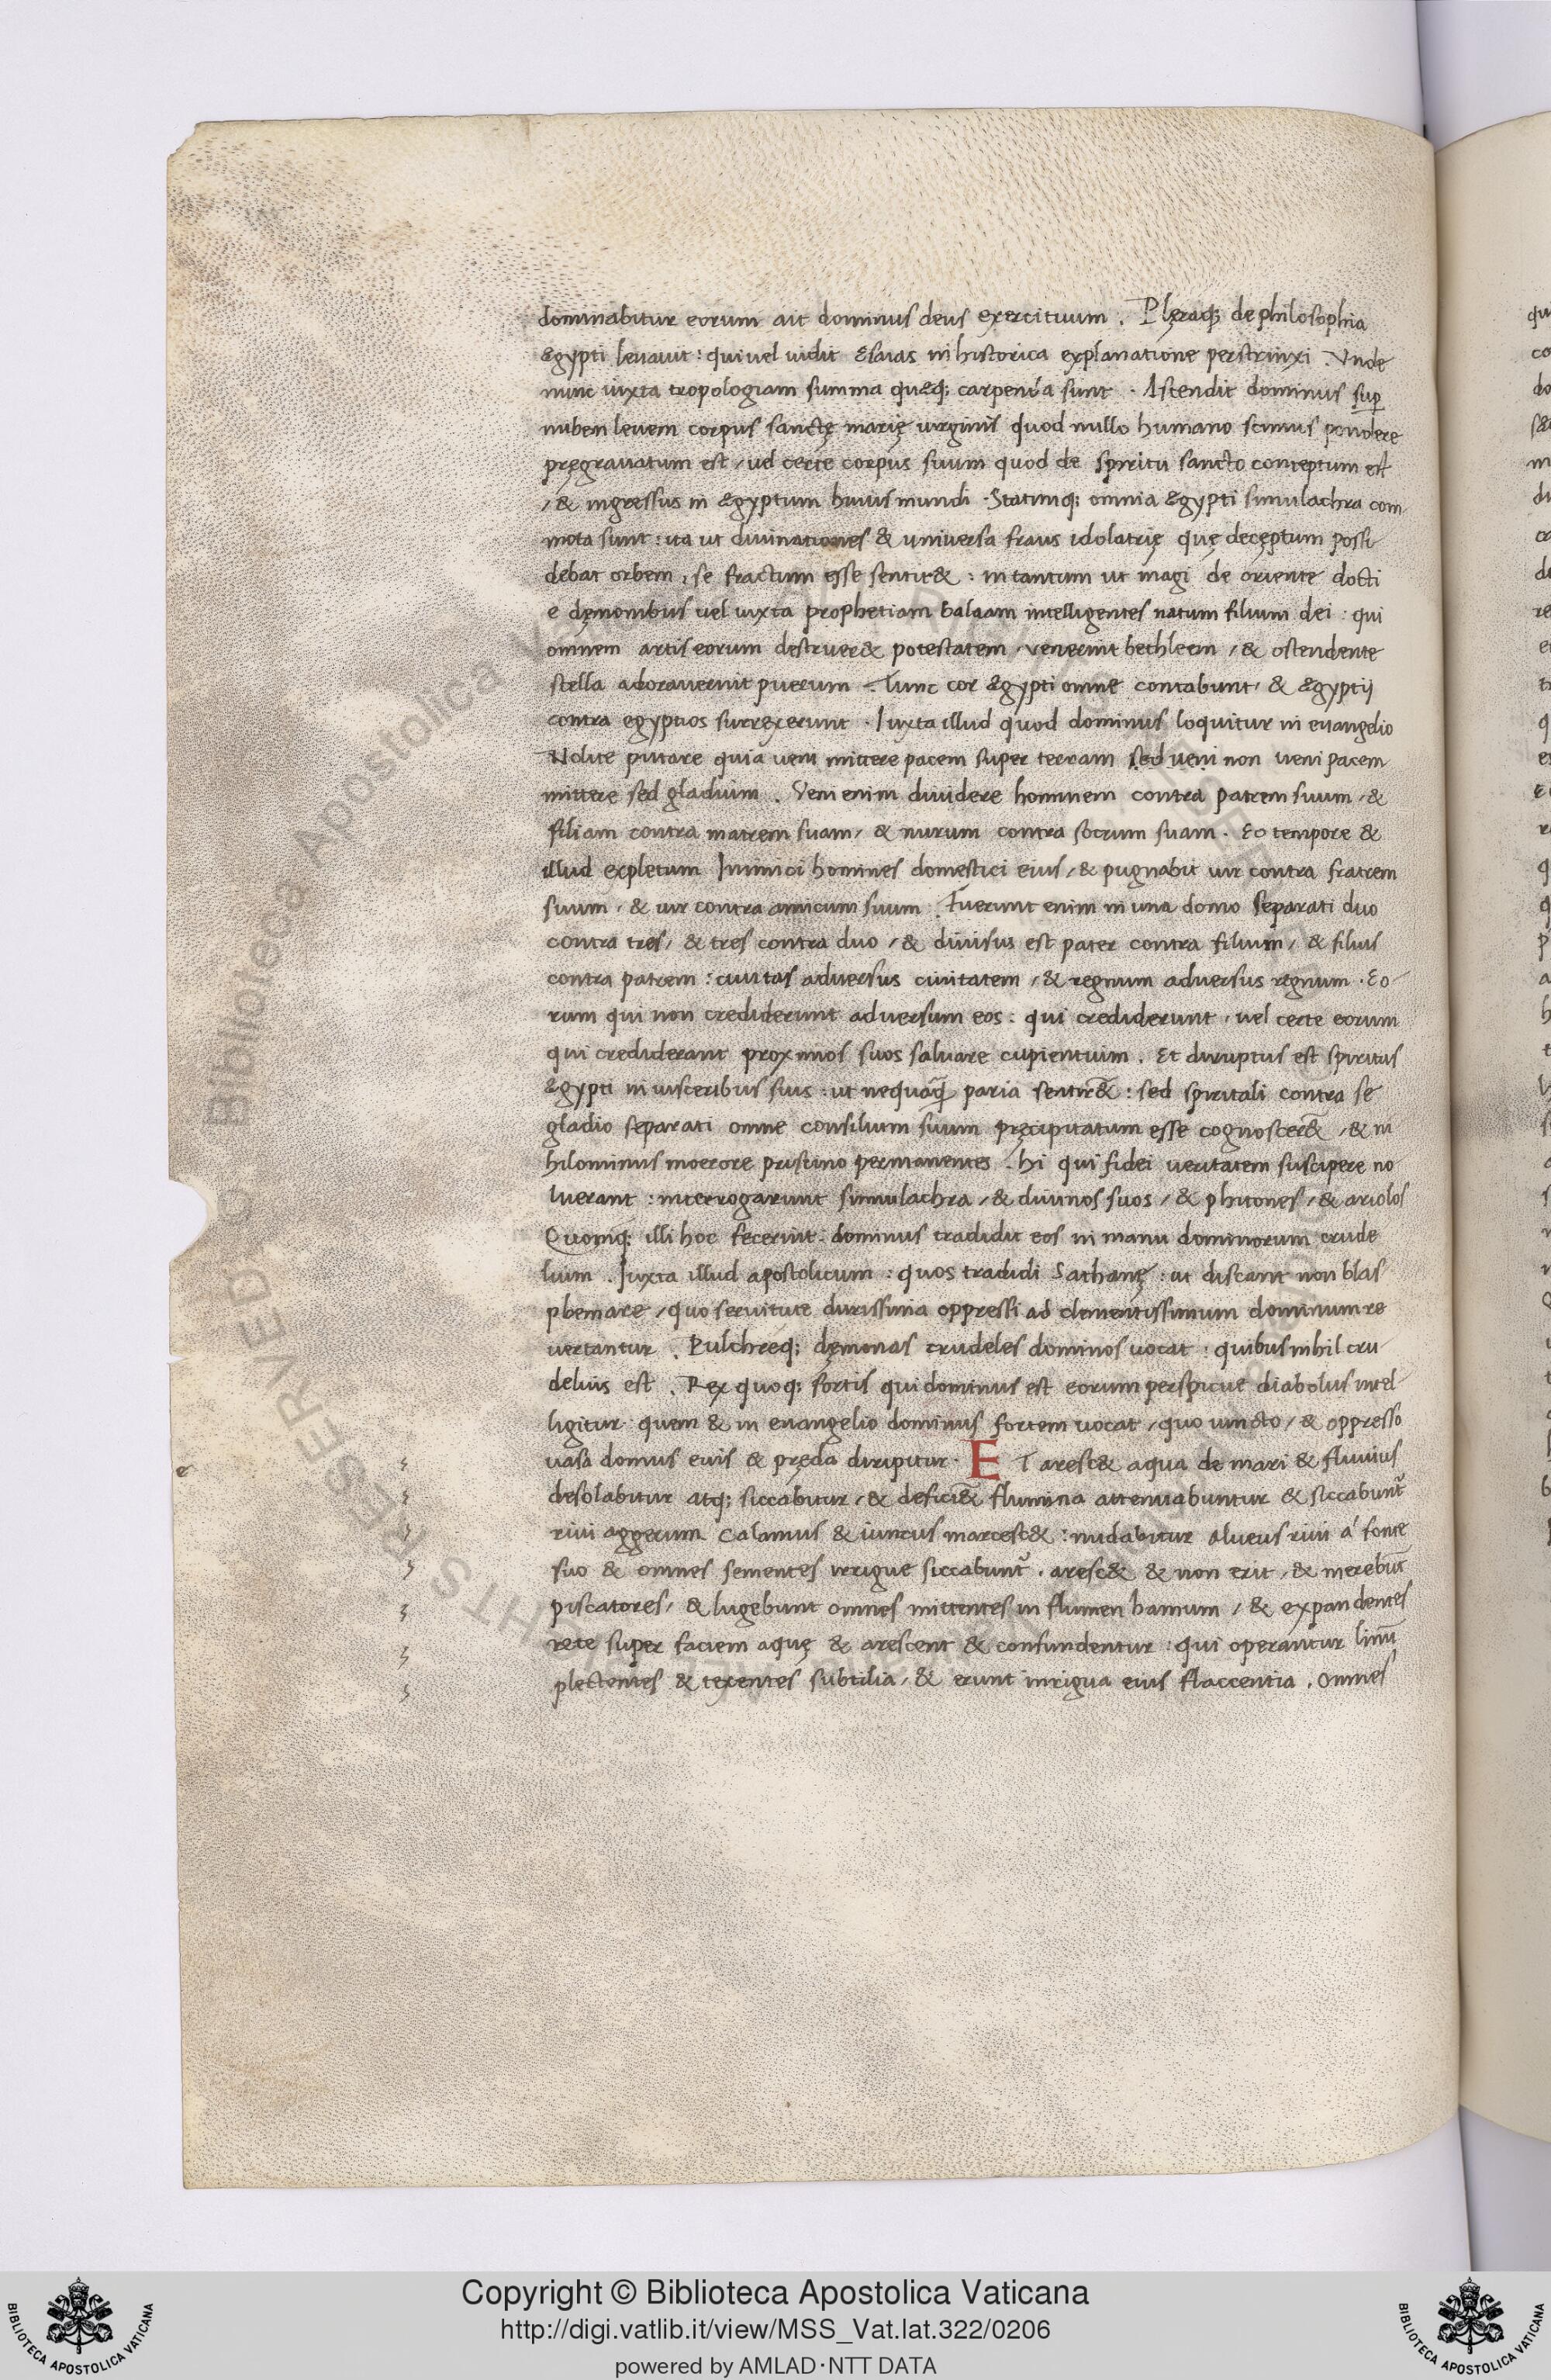 dominabitur eorum ait dominus deus exercituum . Plęraq; de philosophia
ęgypti leuauit : qui uel uidit Esaias in historica explanatione perstrinxi . Vnde
nunc iuxta tropologiam summa quęq; carpenda sunt . Ascendit dominus sup
nubem leuem corpus sanctę marię uirginis quod nullo humano scimus pondere
pręgrauatum est / uel certe corpus suum quod de spiritu sancto conceptum est
/ & ingressus in ęgyptum huius mundi . Statimq; omnia ęgypti simulachra com
mota sunt : ita ut diuinationes & uniuersa fraus idolatrię quę deceptum possi
debat orbem , se fractum esse sentir& : in tantum ut magi de oriente docti
e dęmonibus uel iuxta prophetiam balaam intelligentes natum filium dei : qui
omnem artis eorum destruer& potestatem / venerint bethleem / & ostendente
stella adorauerint puerum . Tunc cor ęgypti omne contabunt / & ęgyptij
contra egyptios surrexerunt . Iuxta illud quod dominus loquitur in euangelio
Nolite putare quia ueni mittere pacem super terram sed ueni non ueni pacem
mittere sed gladium . Veni enim diuidere hominem contra patrem suum / &
filiam contra matrem suam / & nurum contra socrum suam . Eo tempore &
illud expletum Inimici homines domestici eius / & pugnabit uir contra fratrem
suum / & uir contra amicum suum . Fuerunt enim in una domo separati duo
contra tres / & tres contra duo / & diuisus est pater contra filium / & filius
contra patrem : ciuitas aduersus ciuitatem / & regnum aduersus regnum . Eo-
rum qui non crediderunt aduersum eos : qui crediderunt / uel certe eorum
qui crediderant proximos suos saluare cupientium . Et diruptus est spiritus
ęgypti in uisceribus suis : ut nequaq̃ paria sentir& : sed spiritali contra se
gladio separati omne consilium suum pręcipitatum esse cognoscer& / & ni
hilominus moerore pristino permanentes . hi qui fidei ueritatem suscipere no
luerant : interrogarunt simulachra / & diuinos suos / & phitones / & ariolos
Quomq; illi hoc fecerint : dominus tradidit eos in manu dominorum crude
lium . Iuxta illud apostolicum : quos tradidi Sathanę : ut discant non blas
phemare / quo seruitute durissima oppressi ad clementissimum dominum re
uertantur . Pulchreq; dęmonas crudeles dominos uocat : quibus nihil cru
delius est . Rex quoq; fortis qui dominus est eorum perspicue diabolus intel-
ligitur : quem & in euangelio dominus fortem uocat / quo uincto / & oppresso
uasa domus eius & pręda diripitur . ET aresc& aqua de mari & fluuius
desolabitur atq; siccabitur / & defici& flumina attenuabuntur & siccabunt̃
riui aggerum Calamus & iuncus marcesc& : nudabitur alueus riui á fonte
suo & omnes sementes irrigue siccabunt̃ . aresc& & non erit / & merebūt
piscatores / & lugebunt omnes mittentes in flumen hamum / & expandentes
rete super faciem aquę & arescent & confundentur : qui operantur linū
plectentes & texentes subtilia / & erunt inrigua eius flaccentia . omnes
Copyright © Biblioteca Apostolica Vaticana
http://digi.vatlib.it/view/MSS_Vat.lat.322/0206
powered by AMLAD·NTT DATA
BIBLIOTECA APOSTOLICA VATICANA
BIBLIOTECA APOSTOLICA VATICANA